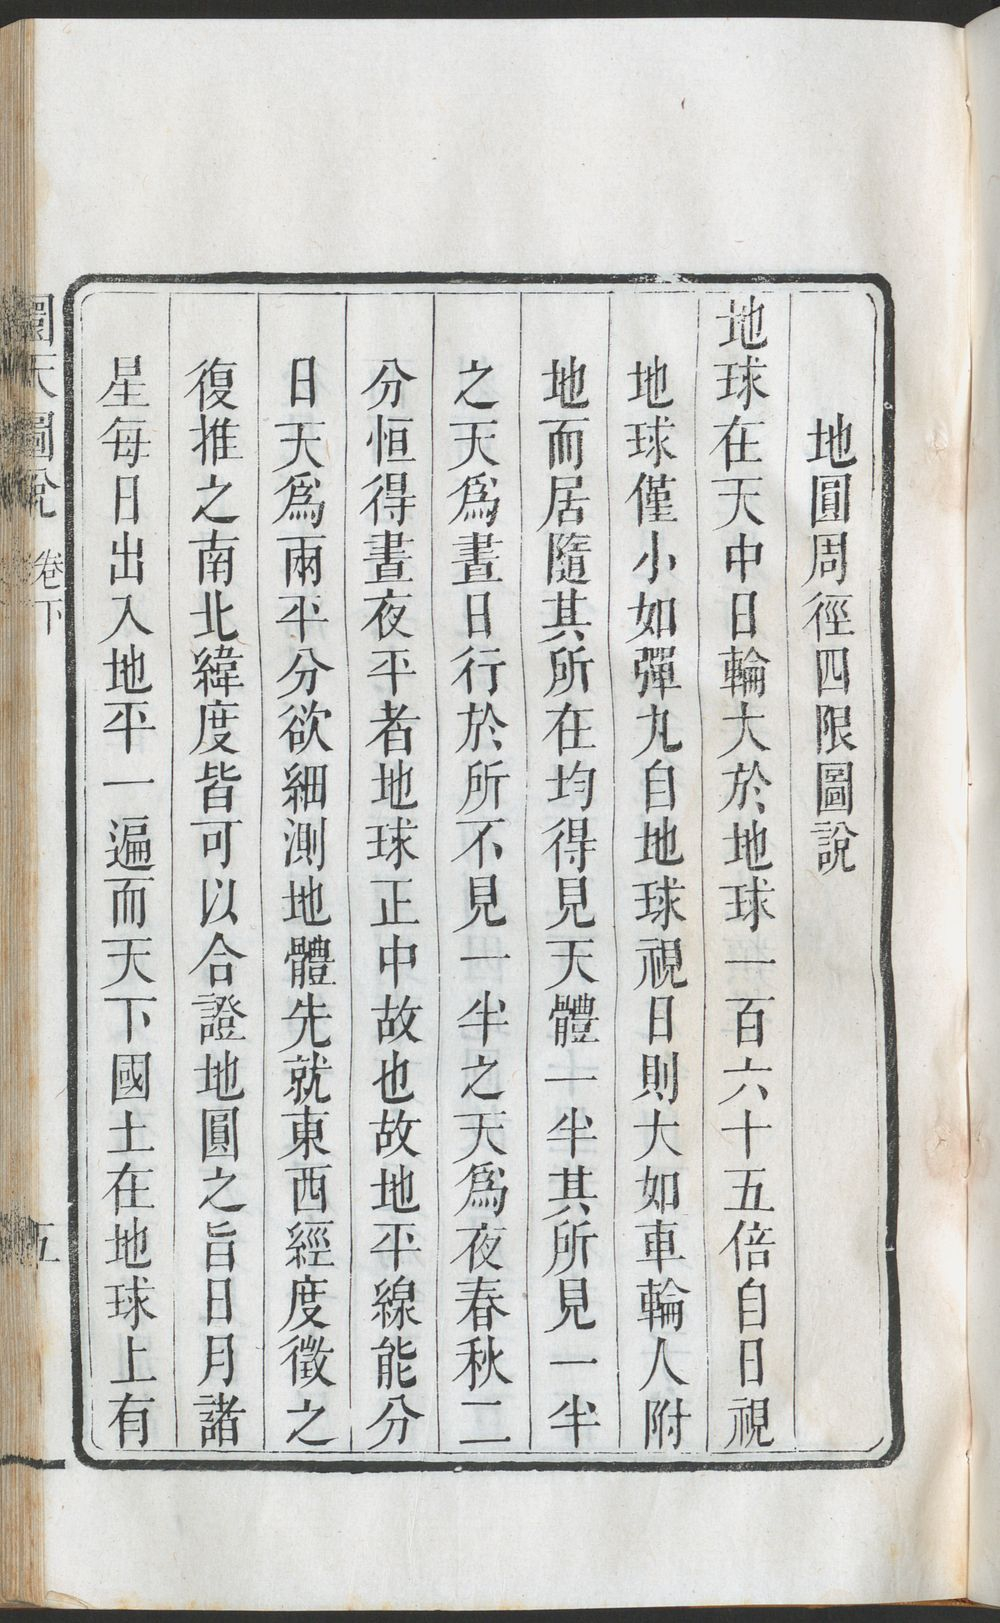 地圓周徑四限圖說
地球在天中日輪大於地球一百六十五倍自日視
地球僅小如彈丸自地球視日則大如車輪人附
地而居隨其所在均得見天體一半其所見一半
之天爲晝日行於所不見一半之天爲夜春秋二
分恒得晝夜平者地球正中故也故地平線能分
日天爲兩平分欲細測地體先就東西經度徵之
復推之南北緯度皆可以合證地圓之旨日月諸
星每日出入地平一遍而天下國土在地球上有
圜天圖說 卷下 五